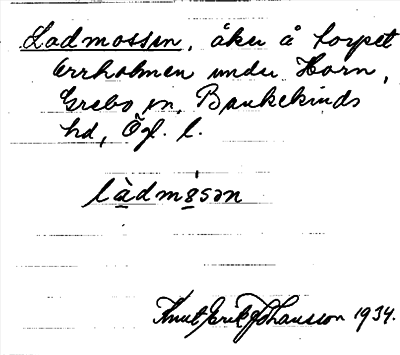 Ladmossen, åker å torpet
Errholmen under Horn,
Grebo sn, Bankekinds
hd, Ögl. l.
làdmɷsən
Knut Erik Johansson 1934.